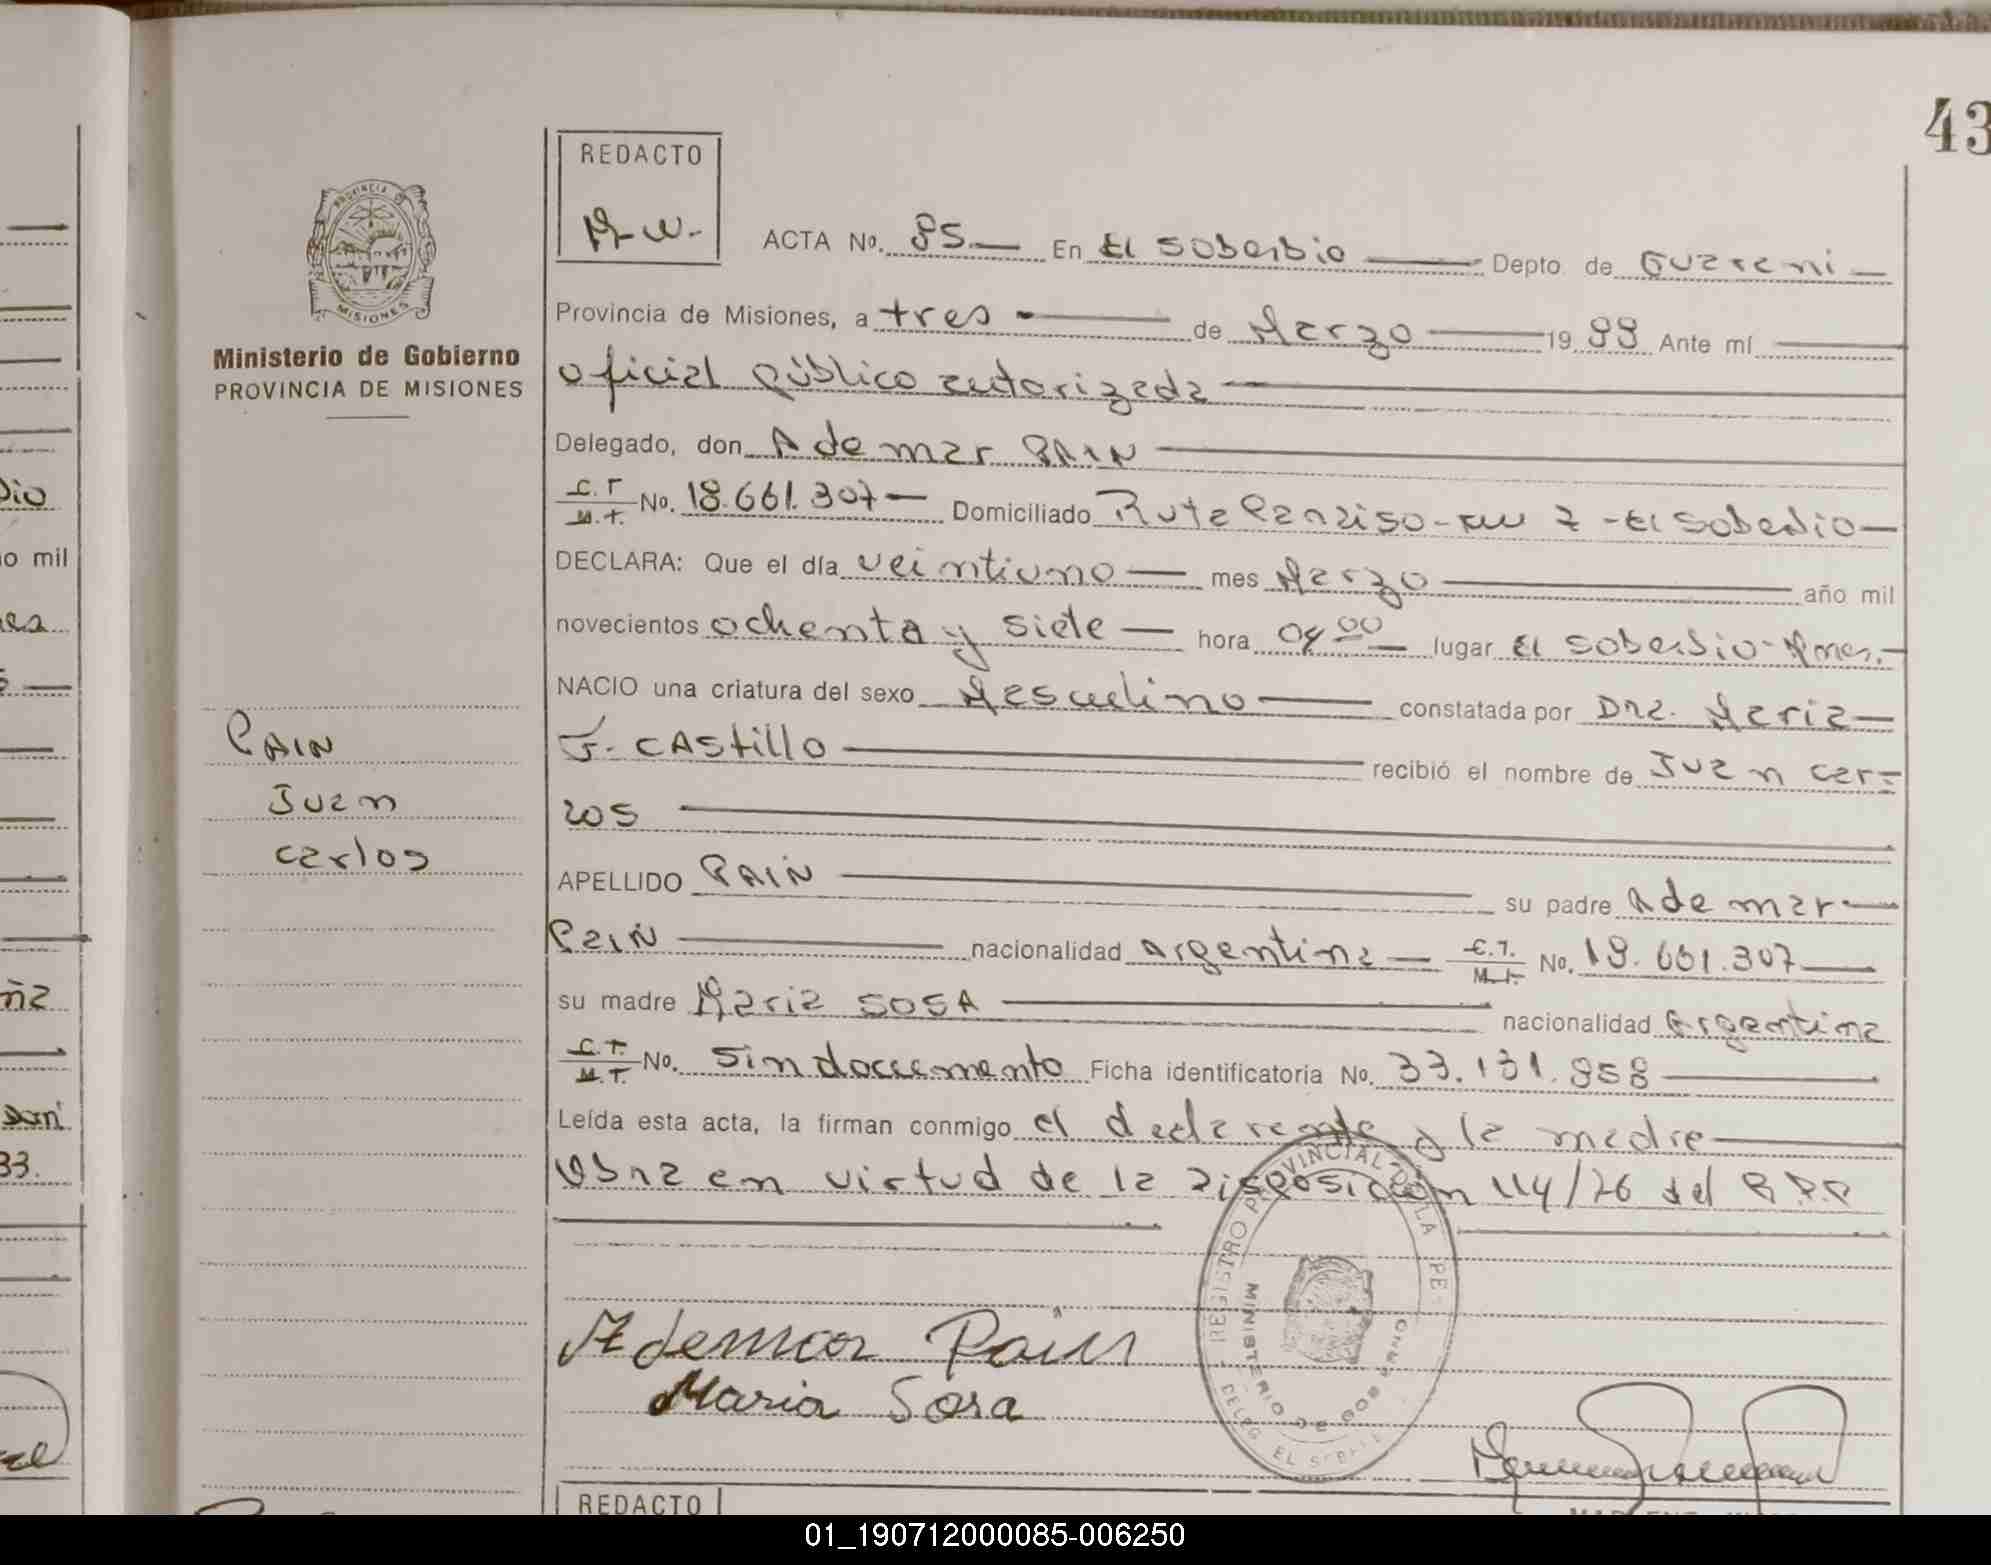 43
REDACTO
M.W.
ACTA No. 85 En El Soberbio Depto. de Guarani
Provincia de Misiones, a tres de Marzo 19 88 Ante mí
oficial público autorizada
Delegado, don Ademar PAIN
C.I M.I. No. 18.661.307 Domiciliado Ruta Paraiso - km 7 - El Soberbio
DECLARA: Que el día veintiuno mes Marzo año mil
novecientos ochenta y siete hora 04 00 lugar El Soberbio - Mnes.
NACIO una criatura del sexo Masculino constatada por Dra. Maria
F. CAStillo recibió el nombre de Juan Car=
los
APELLIDO PAIN su padre Ademar
Pain nacionalidad argentina C.I. M.I. No. 18.661.307
su madre Maria SOSA nacionalidad Argentina
C.I. M.I. No. Sin documento Ficha identificatoria No. 33.131.858
Leída esta acta, la firman conmigo el declarante y la madre
Obra en virtud de la Disposición 114/76 del R.P.P
Ademar Pain
Maria Sosa
Ministerio de Gobierno
PROVINCIA DE MISIONES
PROVINCIA
MISIONES
PAIN
Juan
Carlos
REGISTRO PROVINCIAL DE LA PE
MINISTERIO DE GOBIERNO
DELEG. EL
REDACTO
dio
o mil
ña
33.
01_190712000085-006250